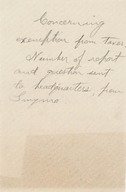 Concerning
exemption from taxes
Number of report
and question sent
to headquaters, from
Smyrna